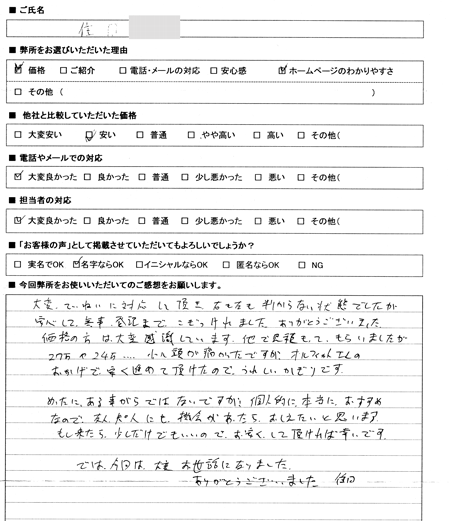 ■ ご氏名
住
■ 弊所をお選びいただいた理由
☑ 価格 □ ご紹介 □ 電話・メールの対応 □ 安心感 ☑ ホームページのわかりやすさ
□ その他 ( )
■ 他社と比較していただいた価格
□ 大変安い ☑ 安い □ 普通 □ やや高い □ 高い □ その他(
■ 電話やメールでの対応
☑ 大変良かった □ 良かった □ 普通 □ 少し悪かった □ 悪い □ その他(
■ 担当者の対応
☑ 大変良かった □ 良かった □ 普通 □ 少し悪かった □ 悪い □ その他(
■ 「お客様の声」として掲載させていただいてもよろしいでしょうか?
□ 実名でOK ☑ 名字ならOK □ イニシャルならOK □ 匿名ならOK □ NG
■ 今回弊所をお使いいただいてのご感想をお願いします。
大変、ていねいに対応して頂き 右も左も判からない状態でしたが
安心して、無事、登記まで、こぎつけれました ありがとうございました
価格の方は大変感謝しています。他で見積もって、もらいましたが
27万や24万.... 少し頭が痛かったですが、オルフィスさんの
おかげで、安く進めて頂けたので、うれしいかぎりです。
めったに、ある事がらではないですが、個人的に、本当に、おすすめ
なので、友人、知人にも、機会があったら、おしえたいと思います
もし来たら、少しだけでもいいので、お安くして頂ければ幸いです。
では、今回は、大変 お世話になりました。
ありがとうございました 住田